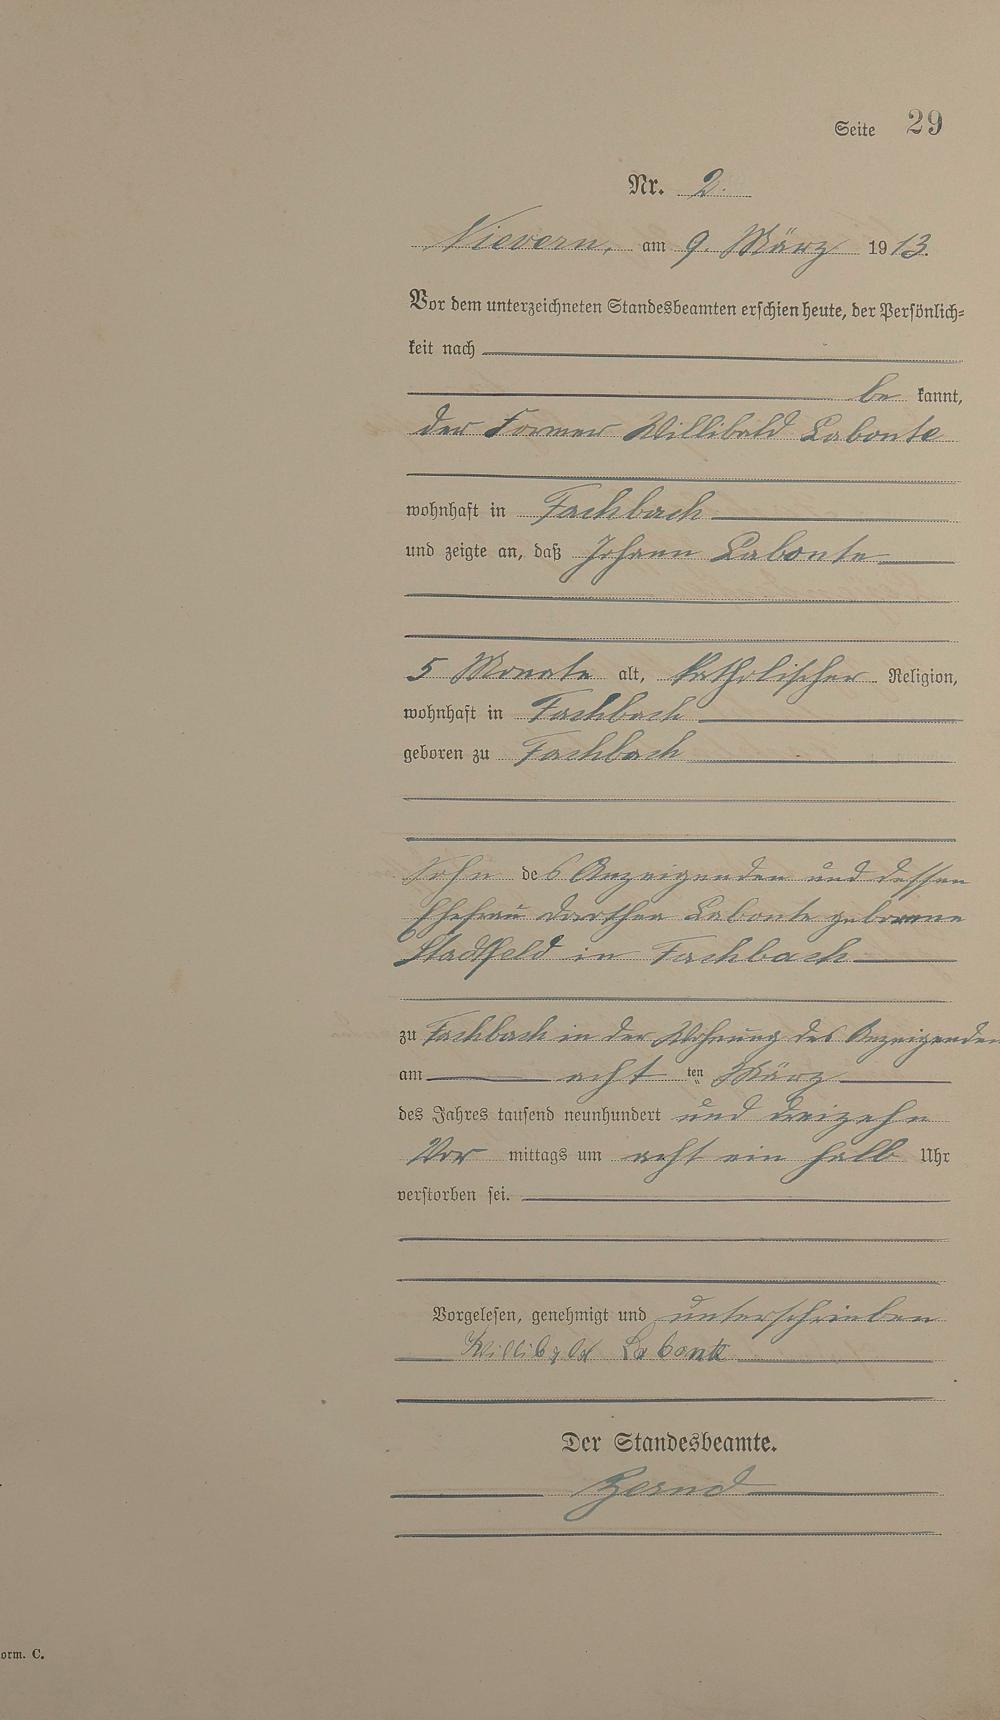 Seite 29
Nr. 2.
Nievern, am 9. März 1913.
Vor dem unterzeichneten Standesbeamten erschien heute, der Persönlich=
keit nach
be kannt,
der Former Willibald Labonte
wohnhaft in Fachbach
und zeigte an, daß Johann Labonte
5 Monate alt, katholischer Religion,
wohnhaft in Fachbach
geboren zu Fachbach
Sohn des Anzeigenden und dessen
Ehefrau Dorothea Labonte geborene
Stadtfeld in Fachbach
zu Fachbach in der Wohnung des Anzeigenden
am acht ten März
des Jahres tausend neunhundert und dreizehn
Vor mittags um acht ein halb Uhr
verstorben sei.
Vorgelesen, genehmigt und unterschrieben
Willibald Labonte
Der Standesbeamte.
orm. C.